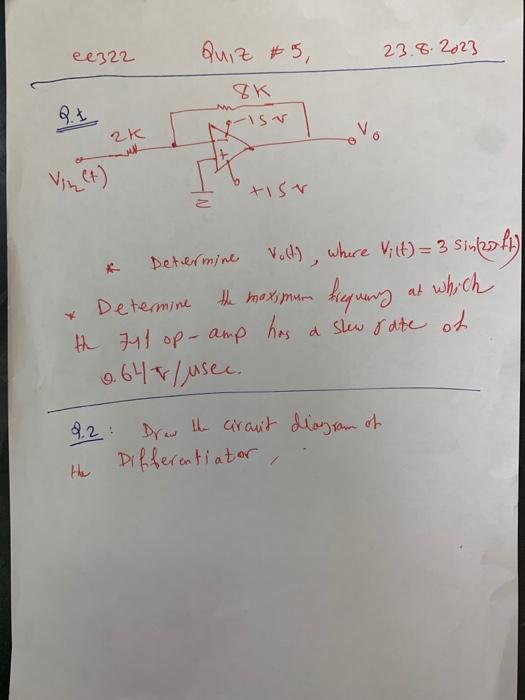 ee322 Quiz #5, 23.8.2023
Q.1
8K
2K
-15v
Vo
Vin(t)
+
+15v
* Determine Vo(t), where Vi(t) = 3 sin(2πft)
* Determine the maximum frequency at which
th 741 op-amp has a slew rate of
0.64 v/μsec.
Q.2: Draw the circuit diagram of
the Differentiator,